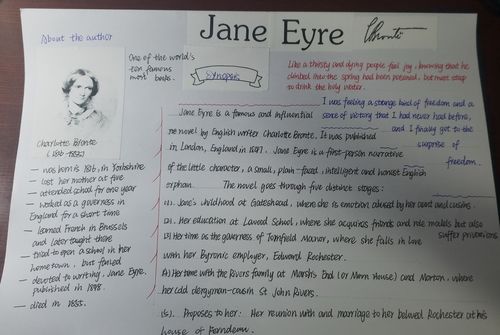 Jane Eyre
CBrontë
About the author
Charlotte Bronte
(1816-1855)
— was born in 1816, in Yorkshire
— lost her mother at five
— attended school for one year
— worked as a governess in
England for a short time
— learned French in Brussels
and later taught there
— tried to open a school in her
hometown, but failed
— devoted to writing. Jane Eyre,
published in 1848.
— died in 1855.
One of the world's
ten famous
most books.
Synopsis
Like a thirsty and dying people feel joy, knowing that he
climbed into the spring had been poisoned, but must stoop
to drink the holy water.
I was feeling a strange kind of freedom and a
sense of victory that I had never had before,
and I finally got to the
surprise of
freedom.
Jane Eyre is a famous and influential
novel by English writer Charlotte Bronte. It was published
in London, England in 1847. Jane Eyre is a first-person narrative
of the little character, a small, plain-faced, intelligent and honest English
orphan. The novel goes through five distinct stages:
(1). Jane's childhood at Gateshead, where she is emotional abused by her aunt and cousins.
(2). Her education at Lowood School, where she acquires friends and role models but also
suffer privations
(3) Her time as the governess of Thornfield Manor, where she falls in love
with her Byronic employer, Edward Rochester.
(4) Her time with the Rivers family at Marsh's End (or Moor House) and Morton, where
her cold clergyman-cousin St John Rivers.
(5). Proposes to her: Her reunion with and marriage to her beloved Rochester at his
house of Ferndean.